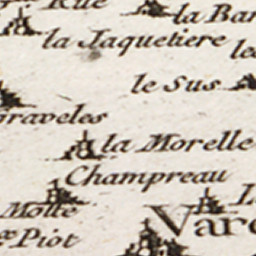 Rue
la Bar
la Jaquetiere
le Sus
graveles
la Morelle
Champreau
Motte
Piot
Varc